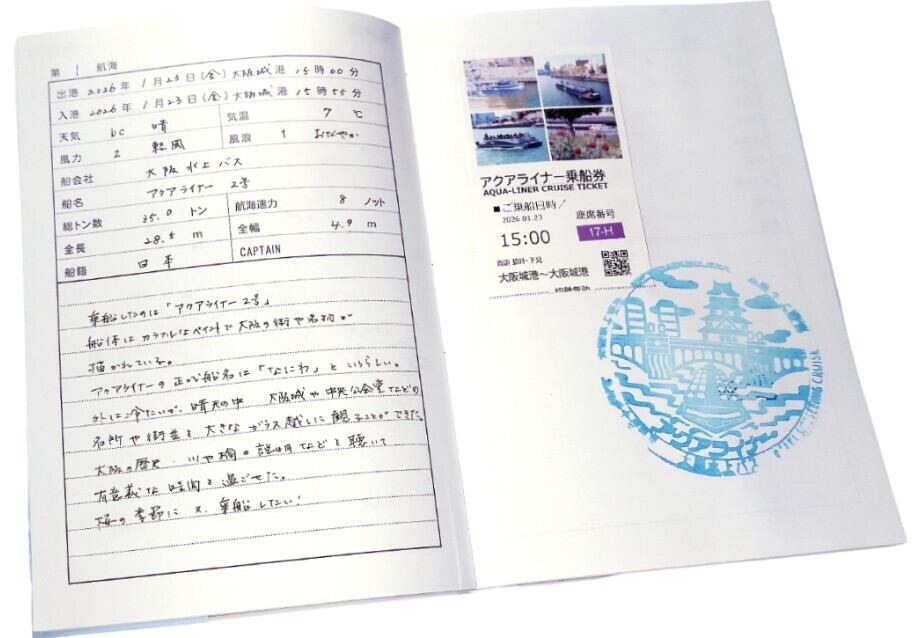 第 1 航海
出港 2026年 1月23日(金) 大阪城 港 15時00分
入港 2026年 1月23日(金) 大阪城 港 15時55分
天気 bc 晴 気温 7 ℃
風力 2 軽風 風浪 1 おだやか
船会社 大阪水上バス
船名 アクアライナー 2号
総トン数 35.0 トン 航海速力 8 ノット
全長 28.5 m 全幅 4.9 m
船籍 日本 CAPTAIN
乗船したのは「アクアライナー2号」
船体はカラフルなペイントで大阪の街や名物が
描かれている。
アクアライナーの正式船名は「なにわ」というらしい。
外は冷たいが、晴天の中 大阪城や中央公会堂などの
名所や街並を大きなガラス越しに観ることができた。
大阪の歴史・川や橋の説明などを聴いて
有意義な時間を過ごせた。
桜の季節に又、乗船したい!
アクアライナー乗船券
AQUA-LINER CRUISE TICKET
■ご乗船日時/
2026.01.23 座席番号
15:00 17-H
大阪城港〜大阪城港
アクアライナー
大阪水上バス